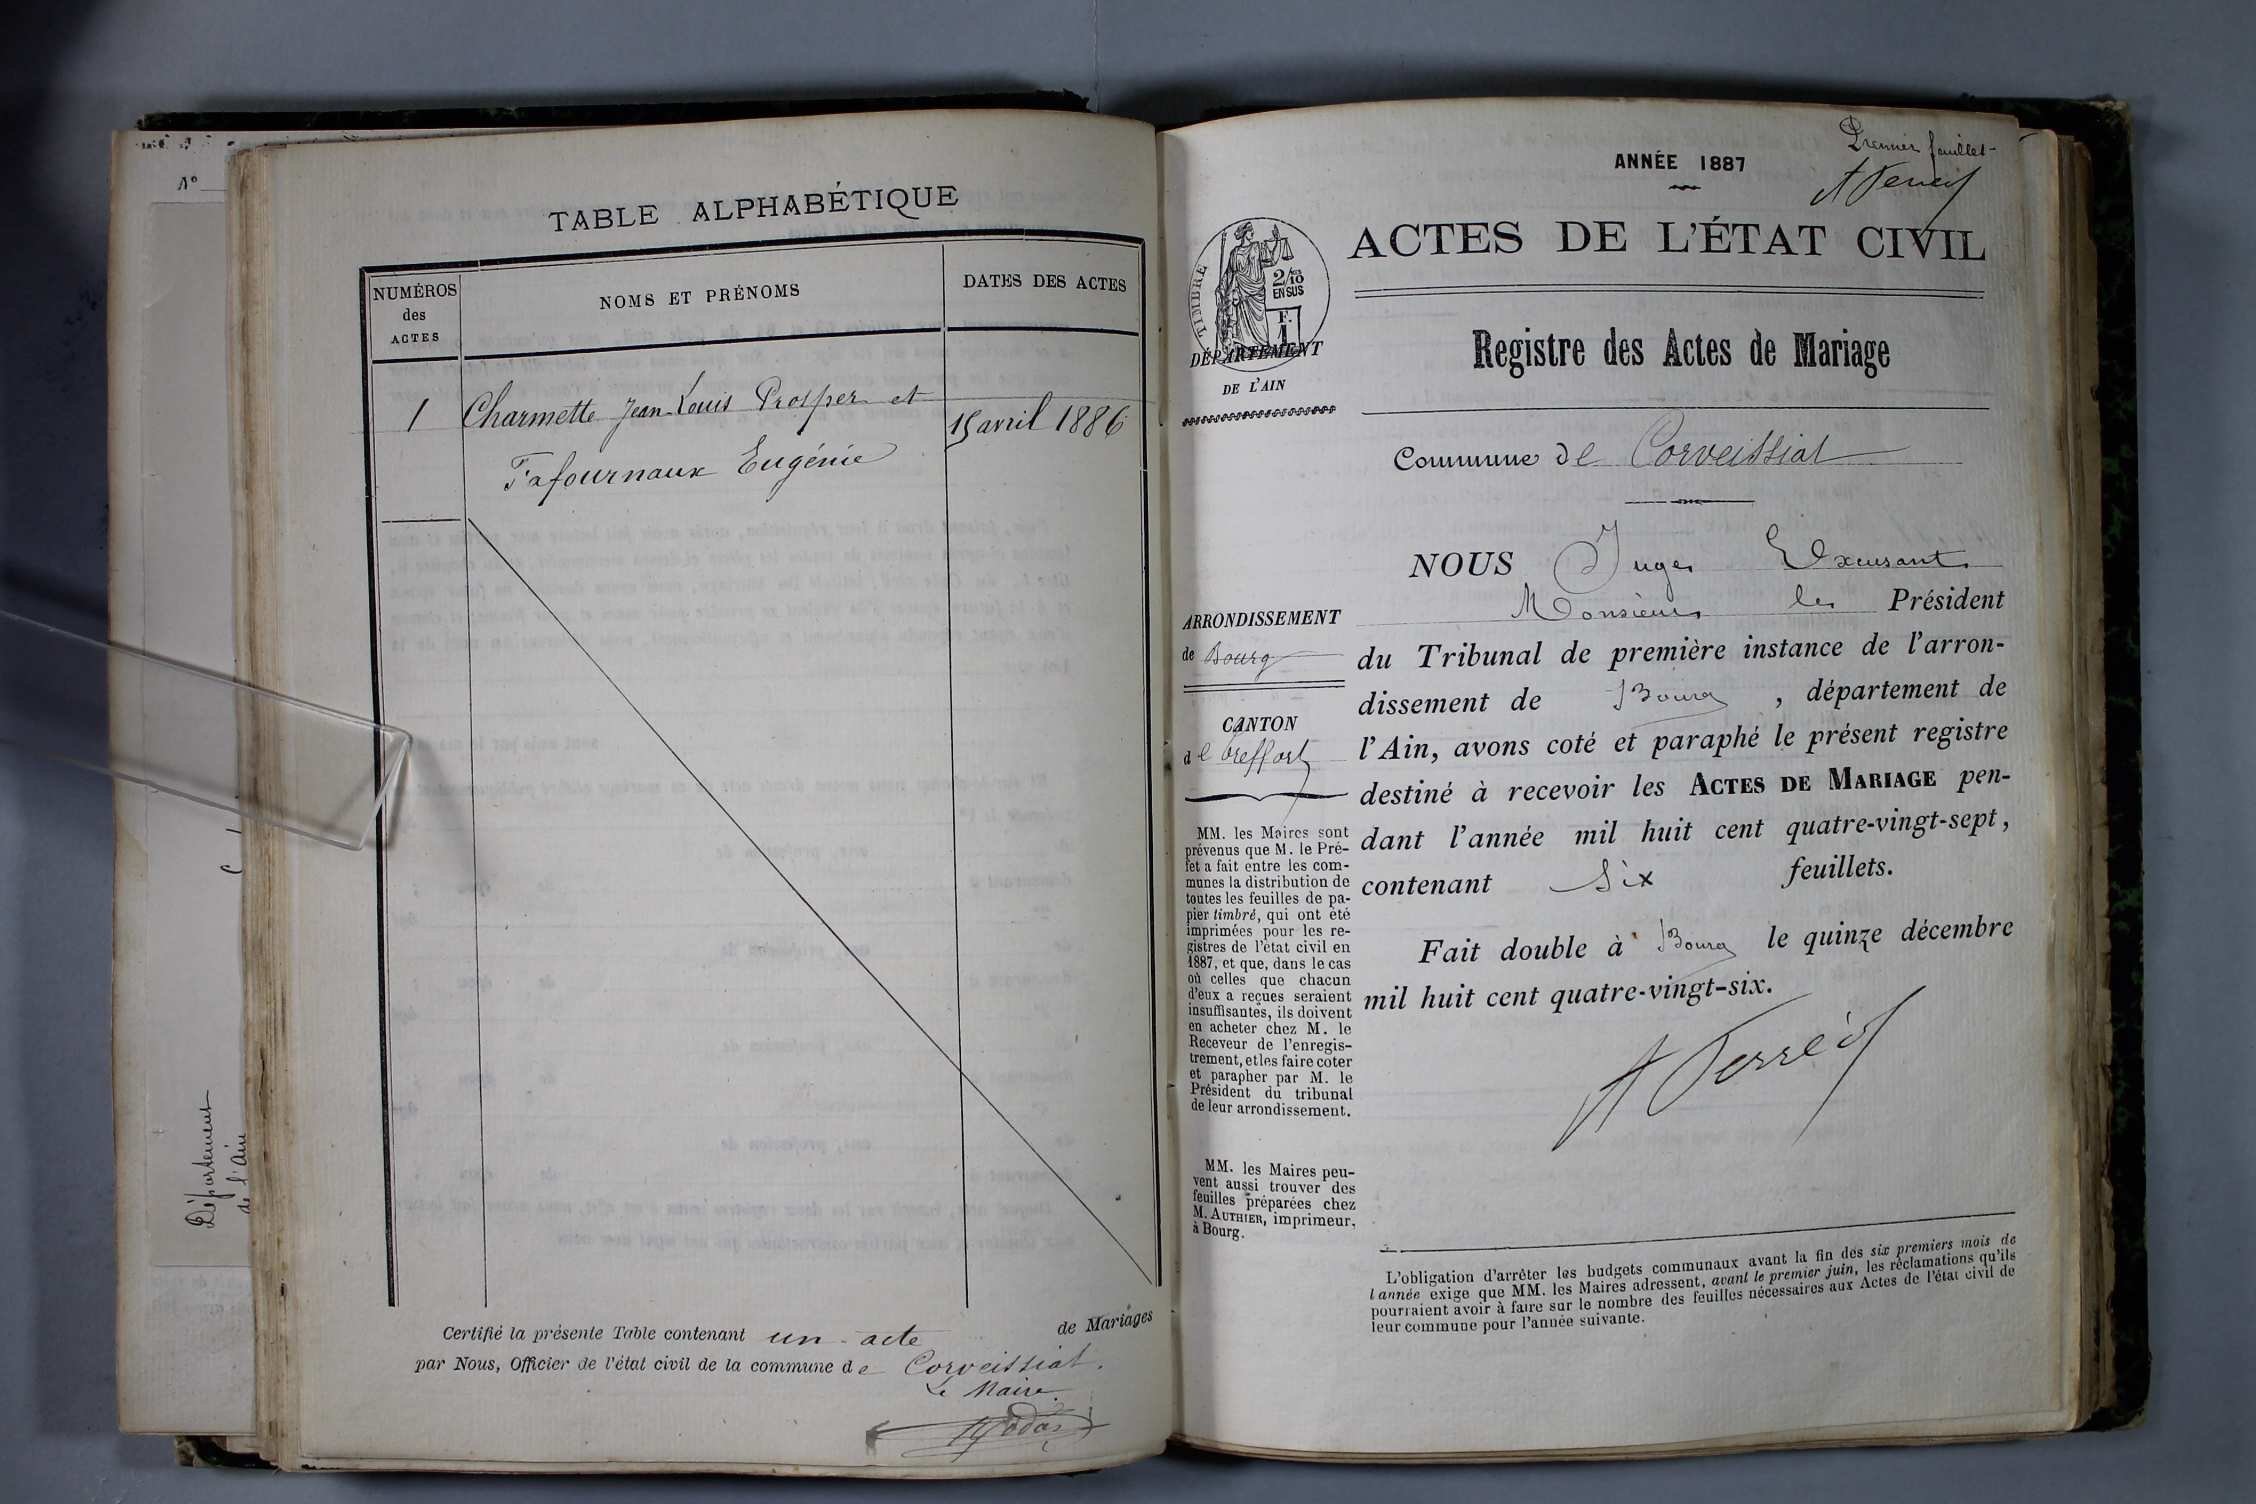 N°
Département
de l'Ain
TABLE ALPHABÉTIQUE
NUMÉROS
des
ACTES
NOMS ET PRÉNOMS
DATES DES ACTES
1 Charmette Jean-Louis Prosper et 15 avril 1886
Fafournaux Eugénie
Certifié la présente Table contenant un acte de Mariages
par Nous, Officier de l'état civil de la commune de Corveissiat.
Le Maire.
Premier feuillet
ANNÉE 1887
ACTES DE L'ÉTAT CIVIL
TIMBRE
2/10
EN SUS
F.
1
DÉPARTEMENT
DE L'AIN
Registre des Actes de Mariage
Commune de Corveissiat
ARRONDISSEMENT
de Bourg
CANTON
de Treffort
MM. les Maires sont
prévenus que M. le Pré-
fet a fait entre les com-
munes la distribution de
toutes les feuilles de pa-
pier timbré, qui ont été
imprimées pour les re-
gistres de l'état civil en
1887, et que, dans le cas
où celles que chacun
d'eux a reçues seraient
insuffisantes, ils doivent
en acheter chez M. le
Receveur de l'enregis-
trement, et les faire coter
et parapher par M. le
Président du tribunal
de leur arrondissement.
MM. les Maires peu-
vent aussi trouver des
feuilles préparées chez
M. AUTHIER, imprimeur,
à Bourg.
NOUS Juge Excusant
Monsieur le Président
du Tribunal de première instance de l'arron-
dissement de Bourg, département de
l'Ain, avons coté et paraphé le présent registre
destiné à recevoir les ACTES DE MARIAGE pen-
dant l'année mil huit cent quatre-vingt-sept,
contenant Six feuillets.
Fait double à Bourg le quinze décembre
mil huit cent quatre-vingt-six.
L'obligation d'arrêter les budgets communaux avant la fin des six premiers mois de
l'année exige que MM. les Maires adressent, avant le premier juin, les réclamations qu'ils
pourraient avoir à faire sur le nombre des feuilles nécessaires aux Actes de l'état civil de
leur commune pour l'année suivante.